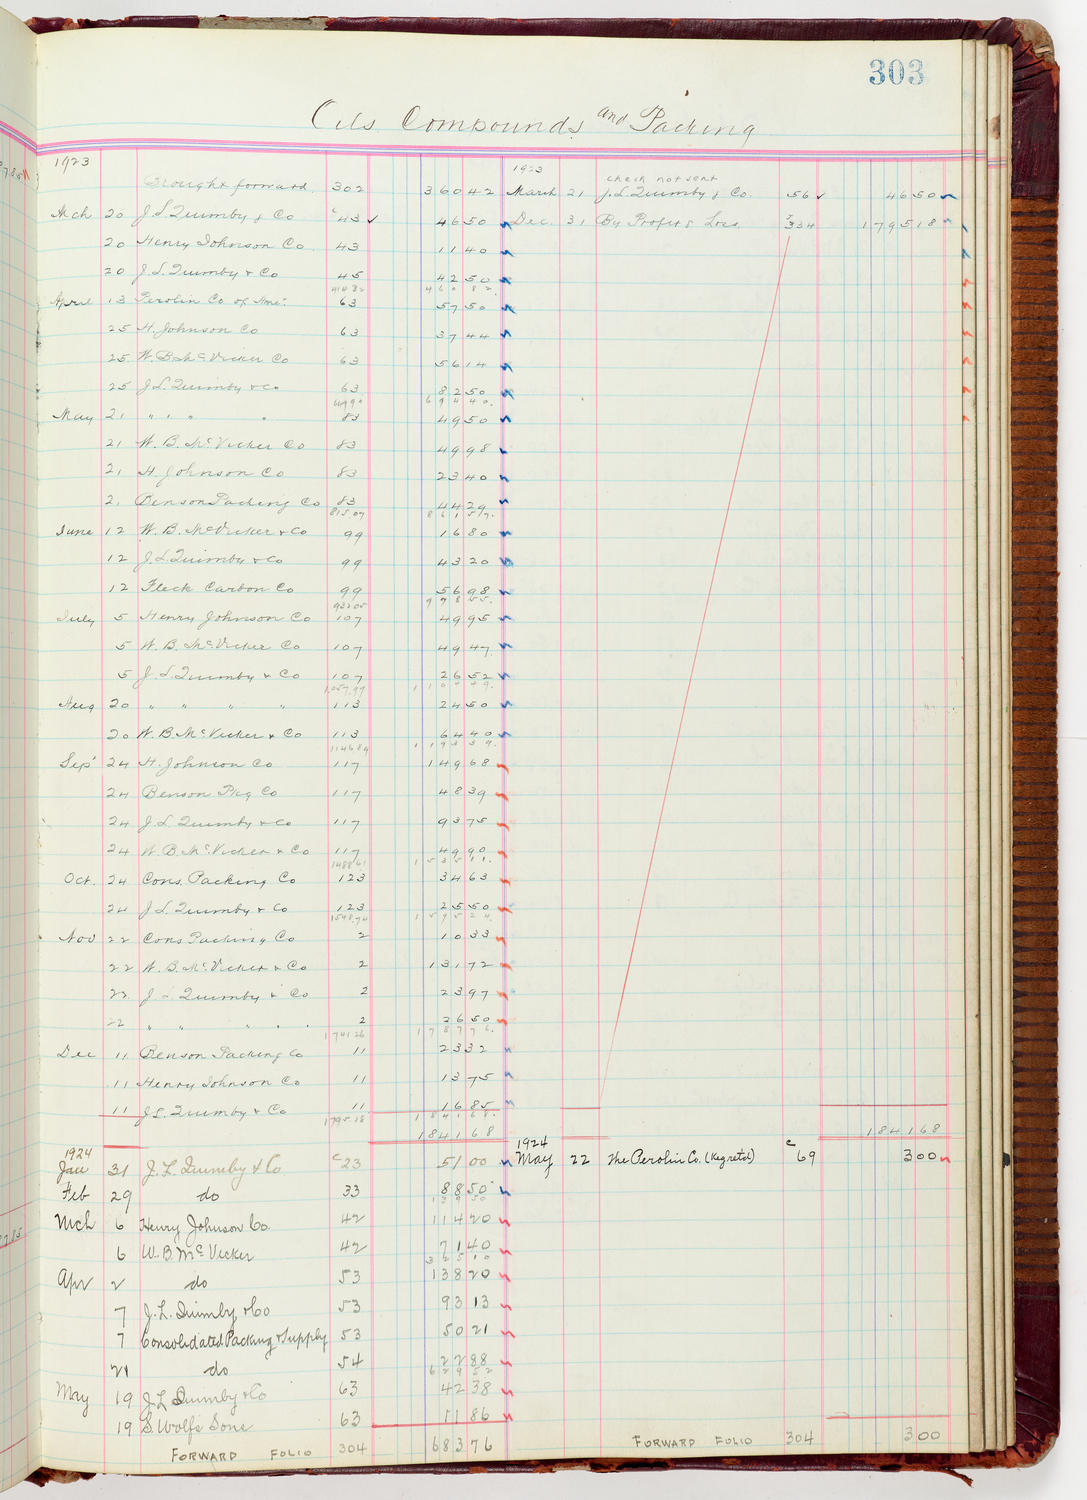 303
Oils Compounds and Packing
1923
Brought forward 302 360 42
Mch 20 J. L. Quimby & Co c43 ✓ 46 50
20 Henry Johnson Co. 43 11 40
20 J. L. Quimby & Co 45 42 50
414 82 460 82
April 13 Perolin Co of Ame: 63 57 50
25 H. Johnson Co 63 37 44
25 W. B. McVicker Co 63 56 14
25 J. L. Quimby & Co 63 82 50
649 90 694 40
May 21 " " " " 83 49 50
21 W. B. McVicker Co 83 49 98
21 H. Johnson Co 83 23 40
21 Benson Packing Co 83 44 29
815 07 861 57
June 12 W. B. McVicker & Co 99 16 80
12 J. L. Quimby & Co 99 43 20
12 Fleck Carbon Co 99 56 98
932 05 978 55
July 5 Henry Johnson Co 107 49 95
5 W. B. McVicker Co 107 49 47
5 J. L. Quimby & Co 107 26 52
1,057.99
Aug 20 " " " " 113 24 50
20 W. B. McVicker & Co 113 64 40
1146 89 1193 39
Sep' 24 H. Johnson Co 117 149 68
24 Benson Pkg Co 117 48 39
24 J L Quimby & Co 117 93 75
24 W. B. McVicker & Co 117 49 90
1488 61 1535 11
Oct. 24 Cons. Packing Co 123 34 63
24 J L Quimby & Co 123 25 50
1548.74 1595 24
Nov 22 Cons Packing Co 2 10 33
22 W. B. McVicker & Co 2 131 72
22 J L Quimby & Co 2 23 97
22 " " " " 2 26 50
1741 26 1787 76
Dec 11 Benson Packing Co 11 23 32
11 Henry Johnson Co 11 13 75
11 J L Quimby & Co 11 16 85
1795.18 1841 68
1841 68
1924
Jan 31 J. L. Quimby & Co c23 51 00
Feb 29 do 33 88 50
139 50
Mch 6 Henry Johnson Co. 42 114 20
6 W. B. McVicker 42 71 40
325 10
Apr 2 do 53 138 20
7 J. L. Quimby & Co 53 93 13
7 Consolidated Packing & Supply 53 50 21
21 do 54 22 88
629 52
May 19 J L Quimby & Co 63 42 38
19 S. Wolfs Sons 63 11 86
FORWARD FOLIO 304 683 76
1923
check not sent
March 21 J. L. Quimby & Co. 56 ✓ 46 50
Dec. 31 By Profit & Loss J334 1795 18
1841 68
1924
May 22 The Perolin Co. (Keg ret'd) c69 3 00
FORWARD FOLIO 304 3 00